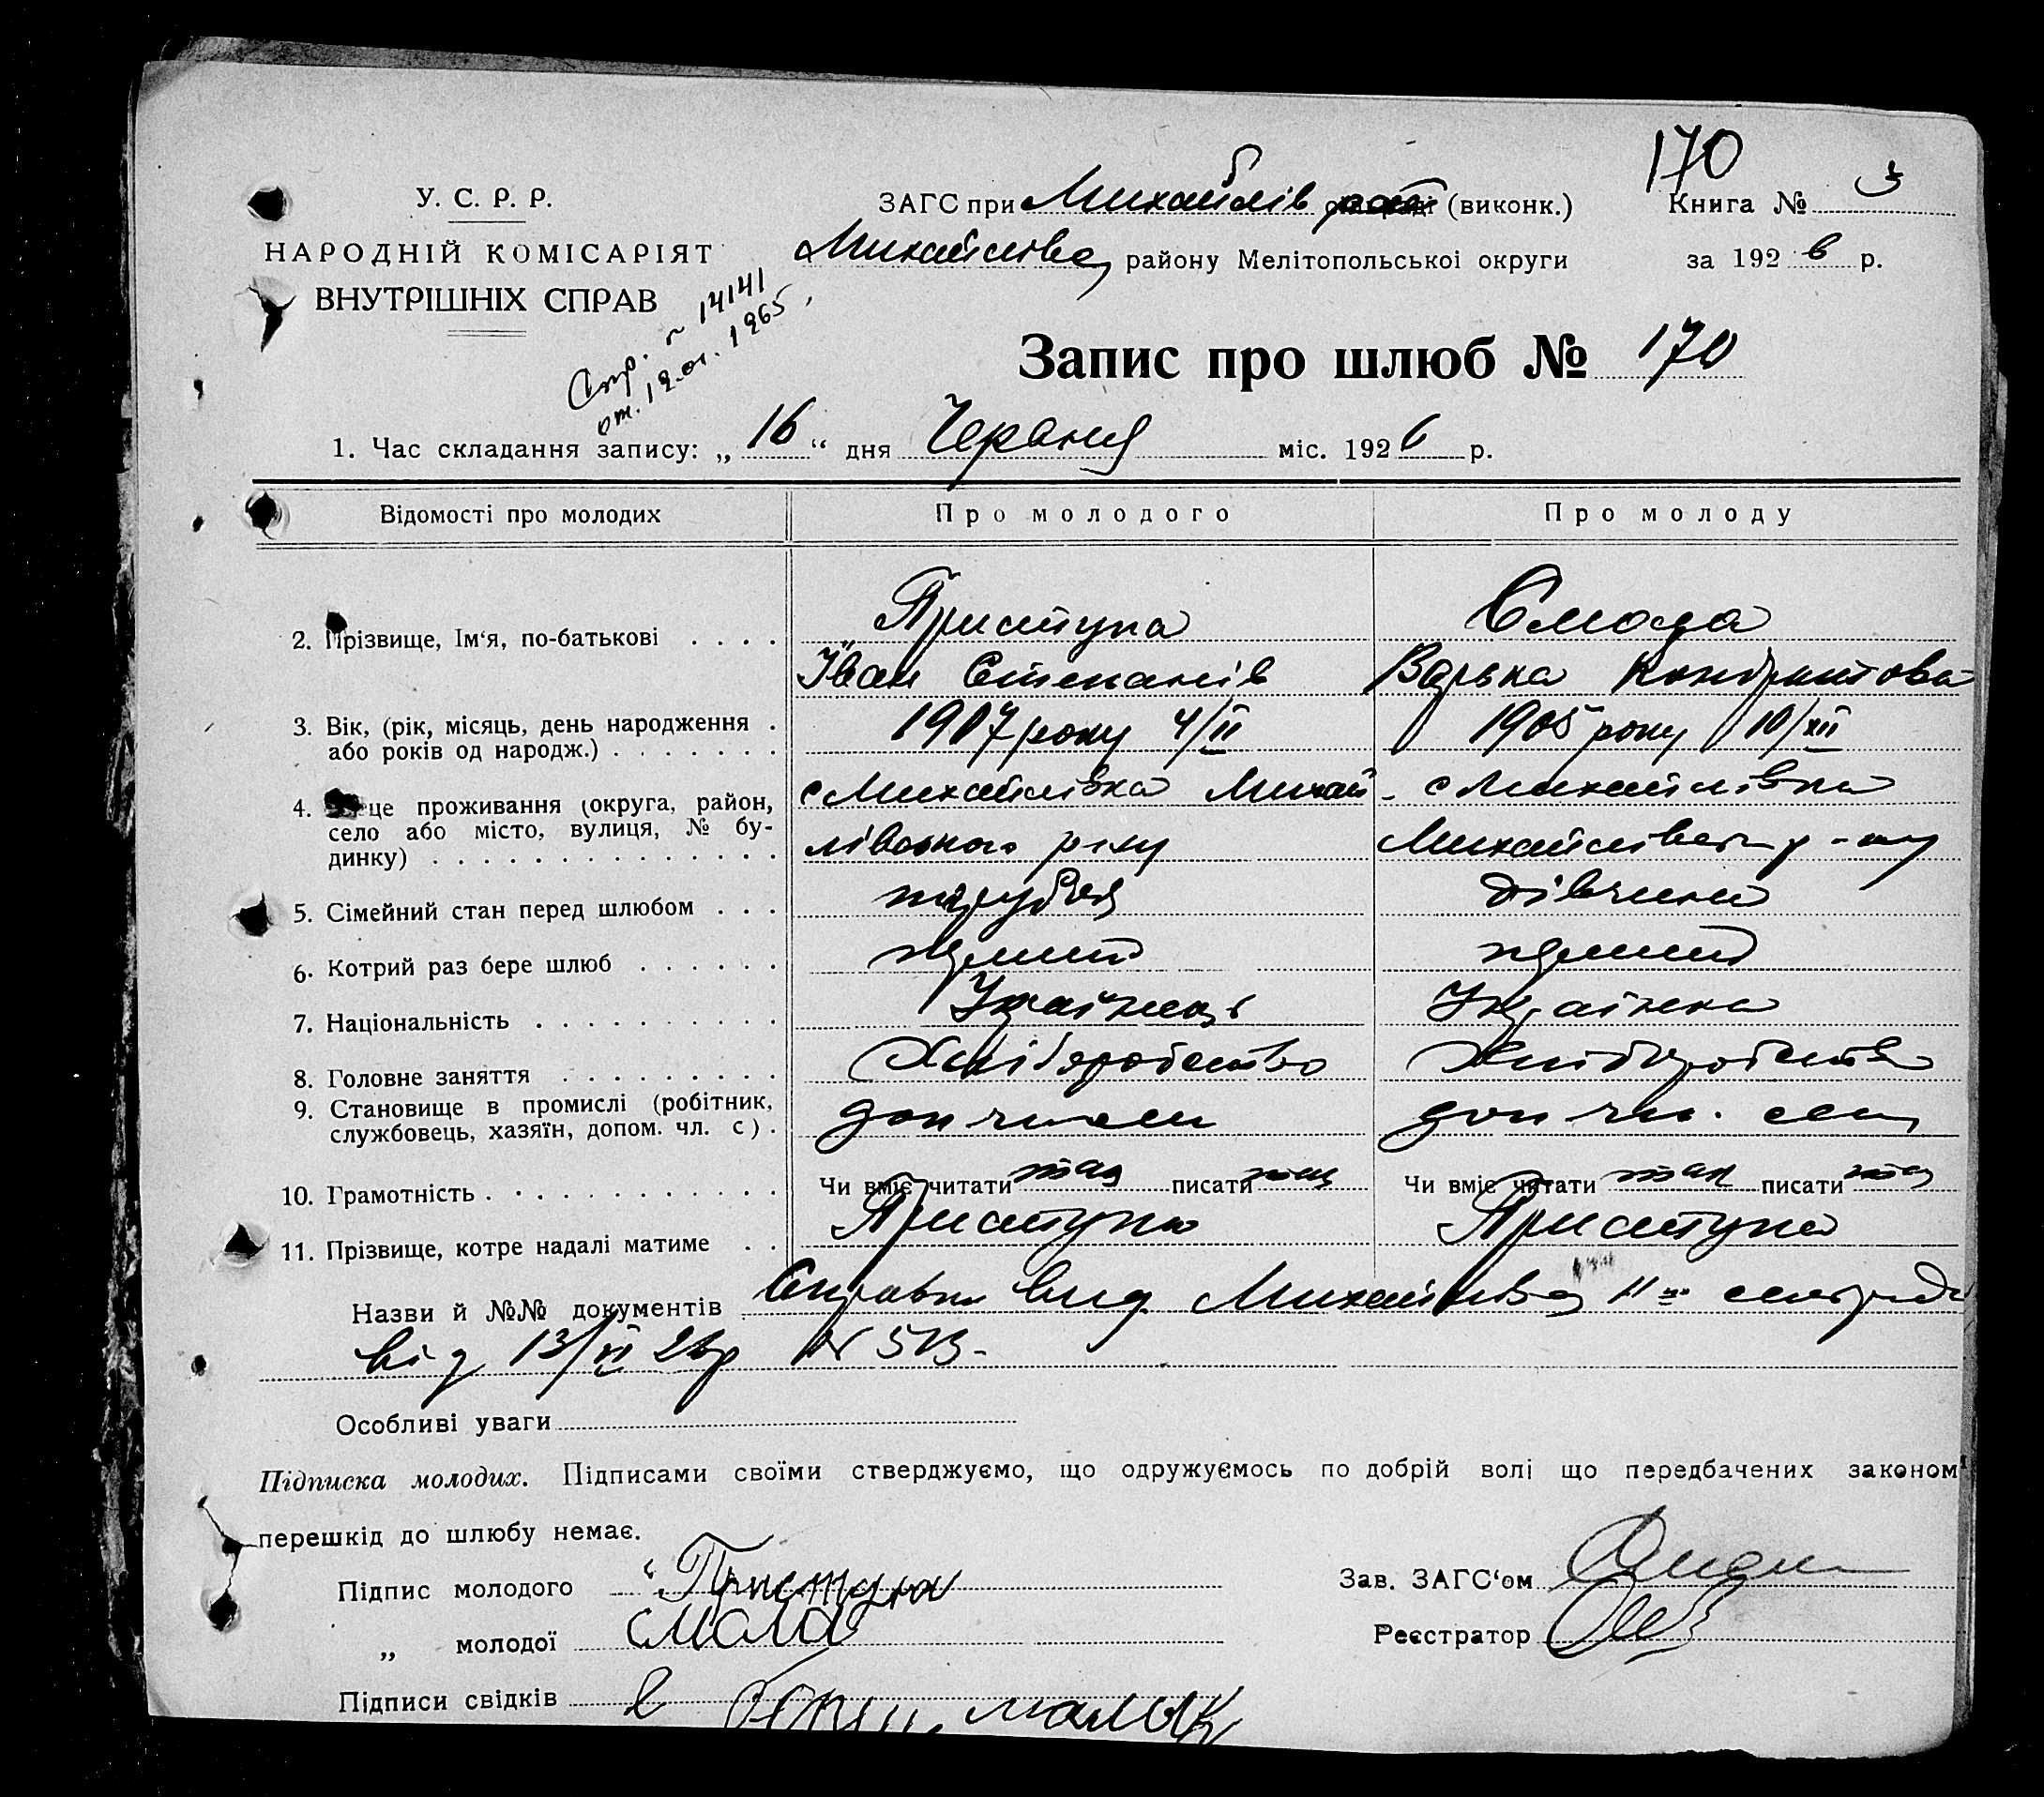 170
У. С. Р. Р.
ЗАГС при Михайлів (виконк.) Книга № 3
НАРОДНІЙ КОМІСАРІЯТ
району Мелітопольської округи за 1926 р.
ВНУТРІШНІХ СПРАВ
Спр. ~ 14141
от. 12.01. 1965
Запис про шлюб № 170
1. Час складання запису: „ 16 “ дня Червня міс. 1926 р.
Відомості про молодих Про молодого Про молоду
2. Прізвище, Ім‘я, по-батькові . . . . Приступа
Іван Степанів Варька Кондратова
3. Вік, (рік, місяць, день народження . 1907 року 4/II 1905 року 10/XII
або років од народж.) . . . . . . .
4. це проживання (округа, район, с Михайлівка Михай- с Михайлівка
село або місто, вулиця, № бу-
динку) . . . . . . . . . . . . . . лівського р-ну
5. Сімейний стан перед шлюбом . . . парубок дівчина
6. Котрий раз бере шлюб . . . . . . перший перший
7. Національність . . . . . . . . . . Українець Українка
8. Головне заняття . . . . . . . . . Хліборобство Хліборобство
9. Становище в промислі (робітник,
службовець, хазяїн, допом. чл. с) . доп чл. сем
10. Грамотність . . . . . . . . . . . Чи вміє читати так писати так Чи вміє читати так писати так
11. Прізвище, котре надалі матиме . . Приступа Приступа
Назви й №№ документів Справка вид. сельради
від 13/VI 26 р № 513.
Особливі уваги
Підписка молодих. Підписами своїми стверджуємо, що одружуємось по добрій волі що передбачених законом
перешкід до шлюбу немає.
Підпис молодого Приступа Зав. ЗАГС‘ом
„ молодої Реєстратор
Підписи свідків 2